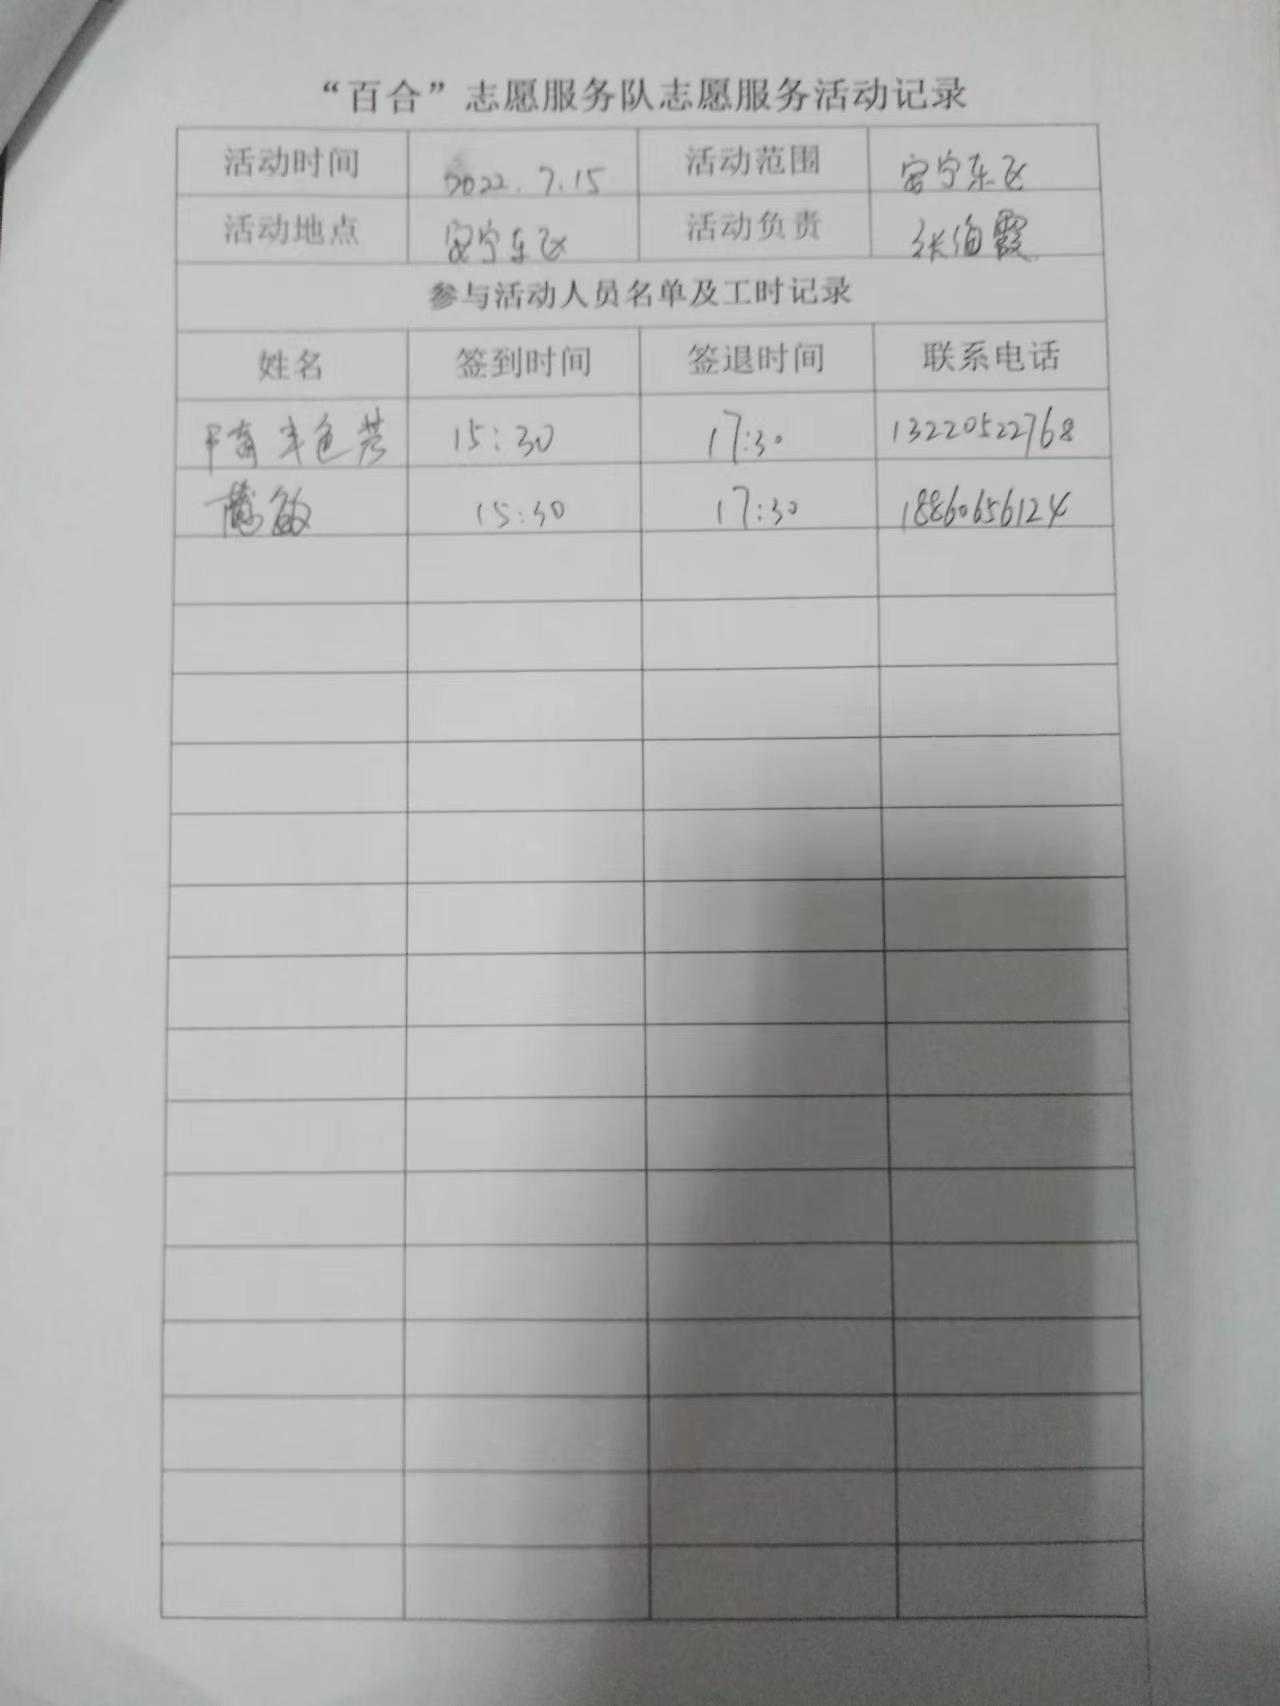 “百合”志愿服务队志愿服务活动记录
活动时间 2022.7.15 活动范围 安宁东区
活动地点 安宁东区 活动负责 张海霞
参与活动人员名单及工时记录
姓名 签到时间 签退时间 联系电话
15:30 17:30 13220522768
敏 15:30 17:30 18860656124